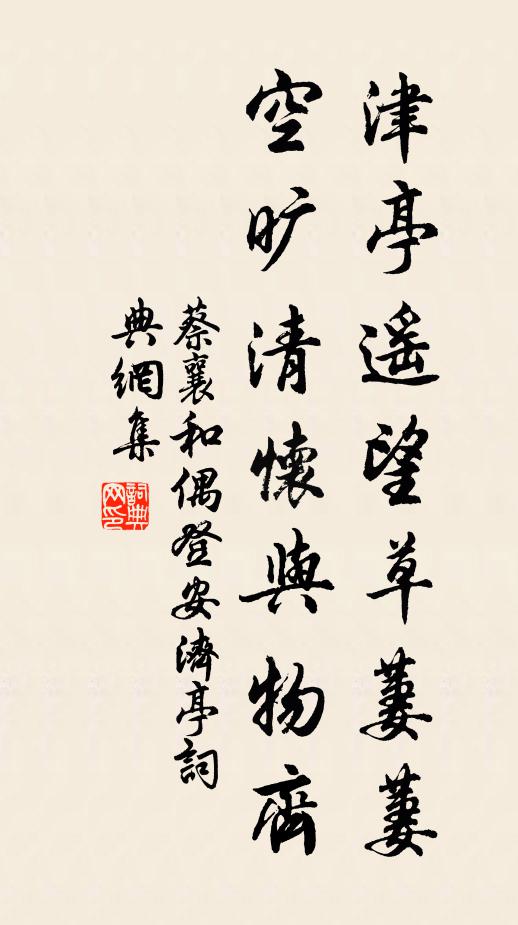 津亭遥望草萋萋
空旷清懷與物齊
蔡襄和偶登安濟亭詞
典網集
詞典网印